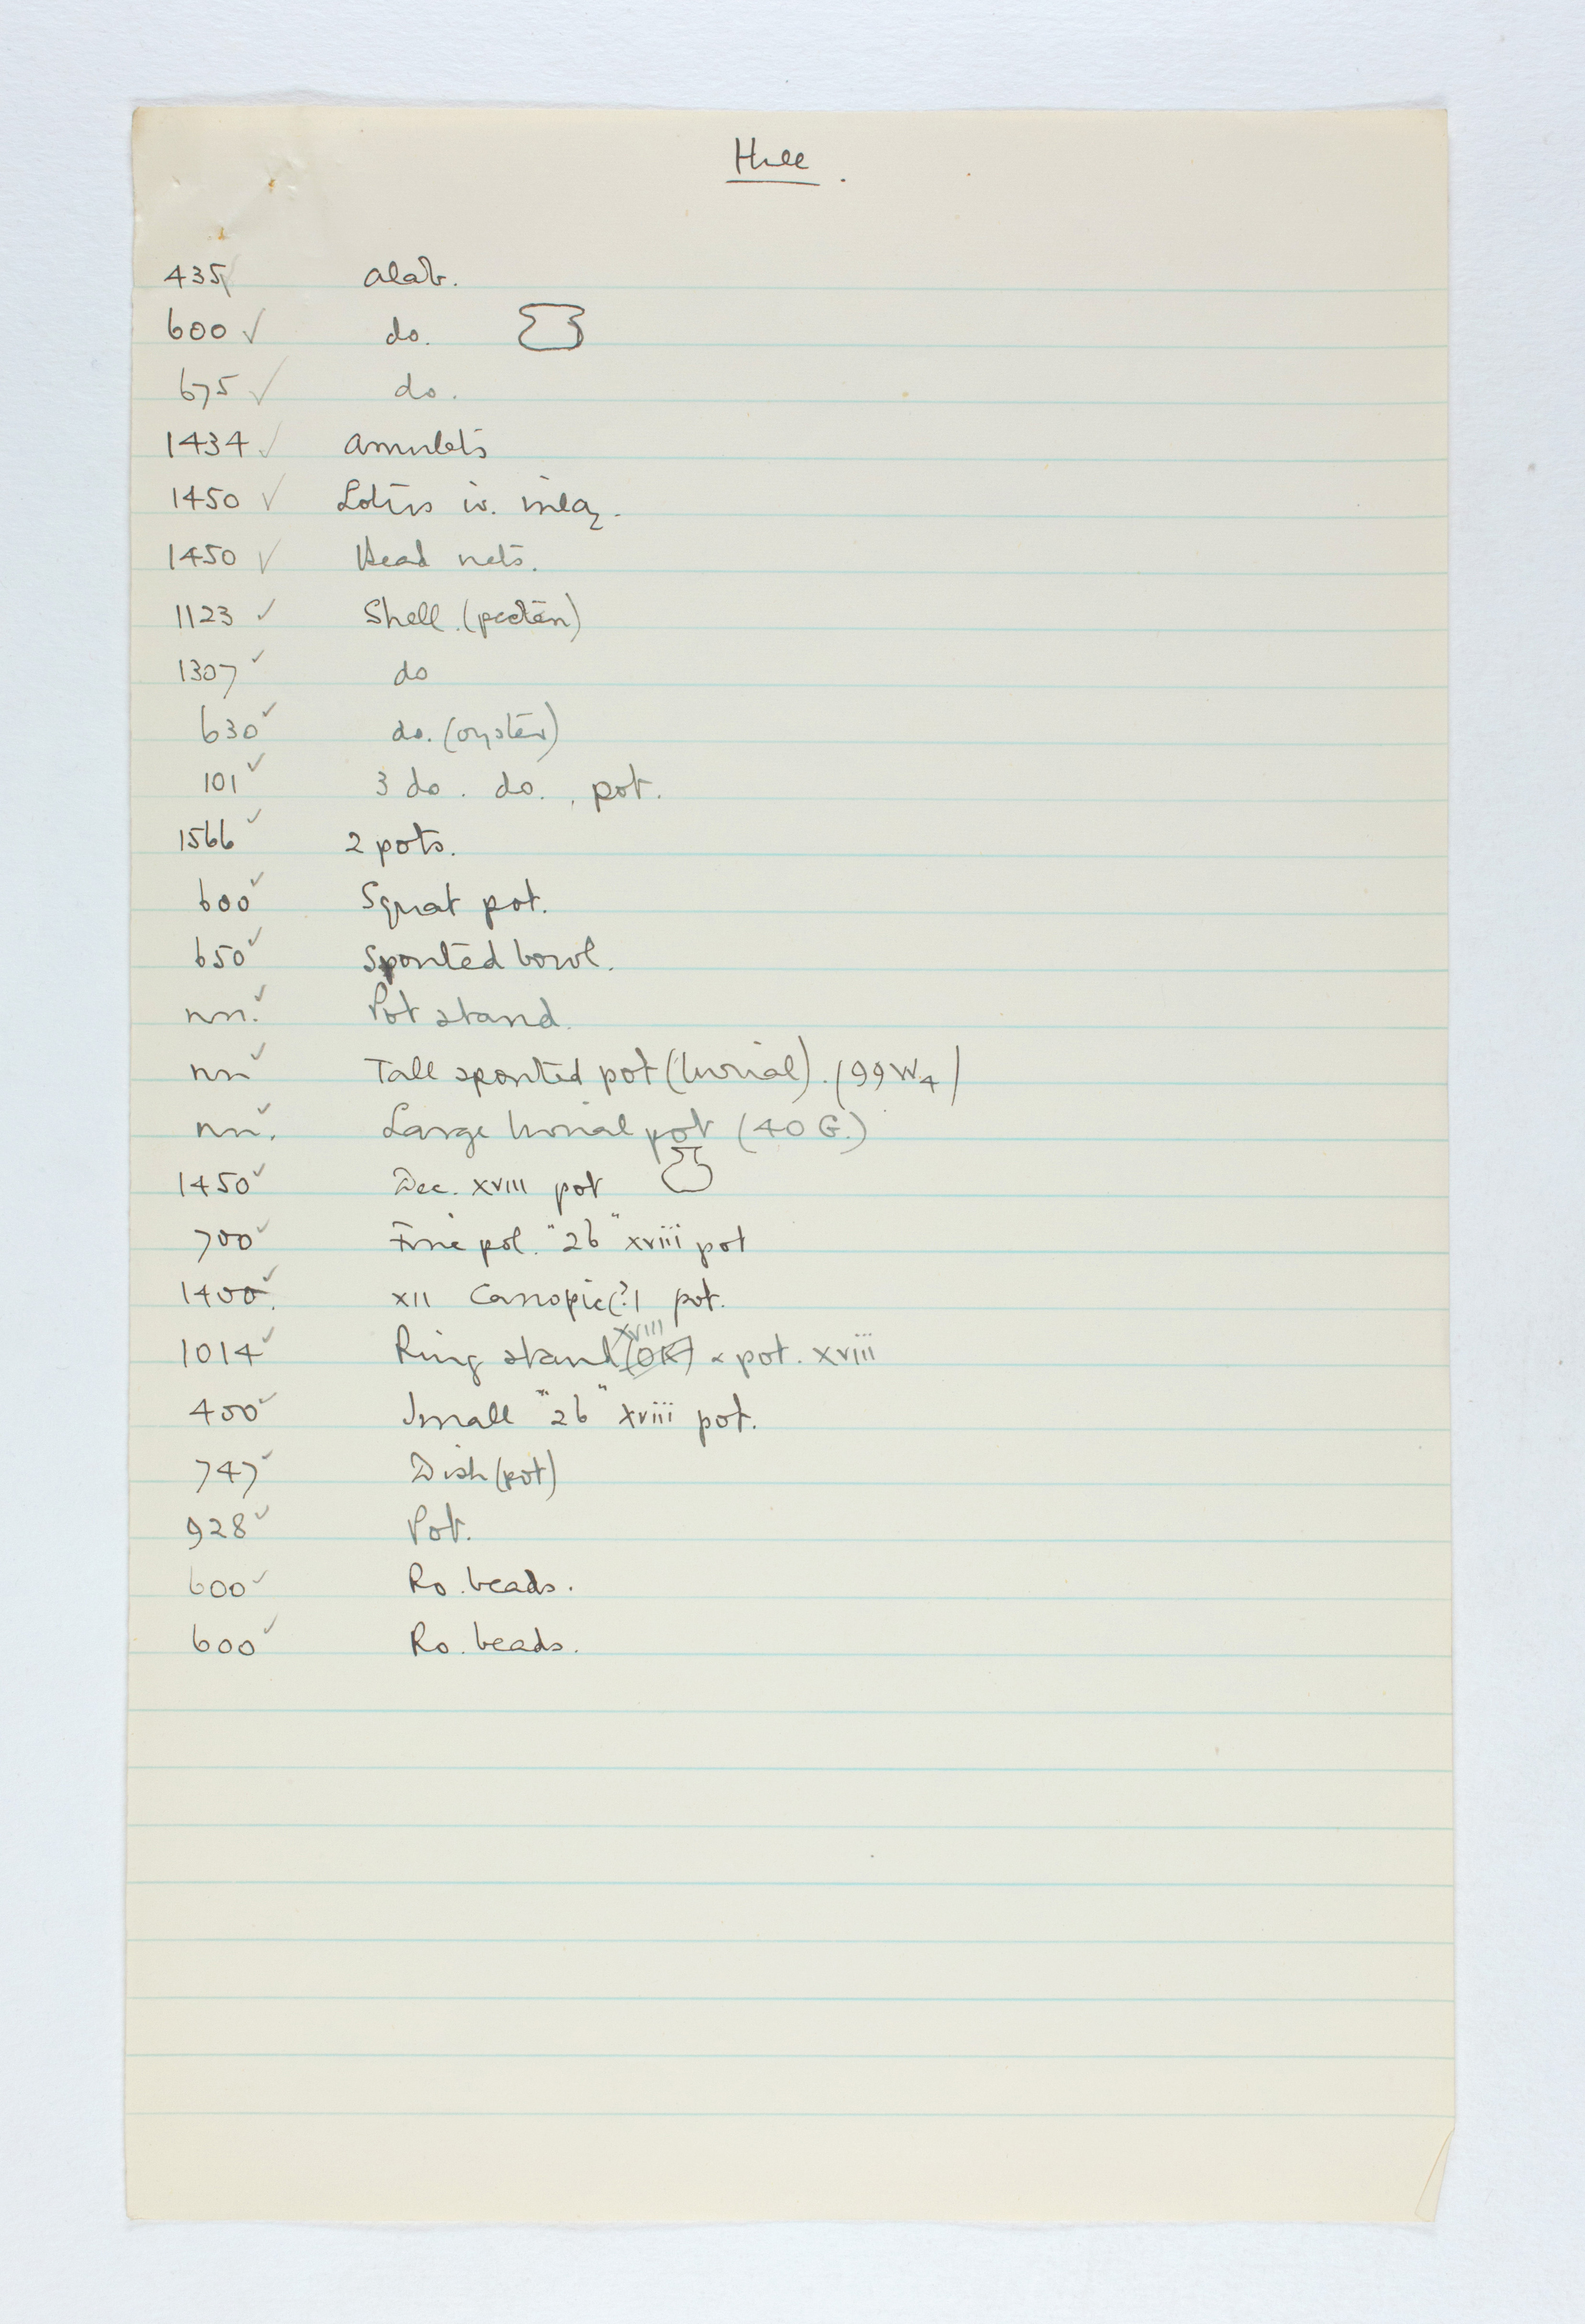 Hull.
435 ✓ alab.
600 ✓ do.
675 ✓ do.
1434 ✓ amulets
1450 ✓ Lotus iv. inlay.
1450 ✓ Head nets.
1123 ✓ Shell. (pecten)
1307 ✓ do
630 ✓ do. (oyster)
101 ✓ 3 do. do., pot.
1566 ✓ 2 pots.
600 ✓ Squat pot.
650 ✓ Spouted bowl.
nn. ✓ Pot stand.
nn ✓ Tall spouted pot (burial). (99W4)
nn. ✓ Large burial pot (40 G.)
1450 ✓ Dec. XVIII pot
700 ✓ Fine pol. "26" xviii pot
1400. ✓ XII Canopic (?) pot.
1014 ✓ Ring stand (OK) XVIII & pot. xviii
400 ✓ Small "26" xviii pot.
747 ✓ Dish (pot)
928 ✓ Pot.
600 ✓ Ro. beads.
600 ✓ Ro. beads.